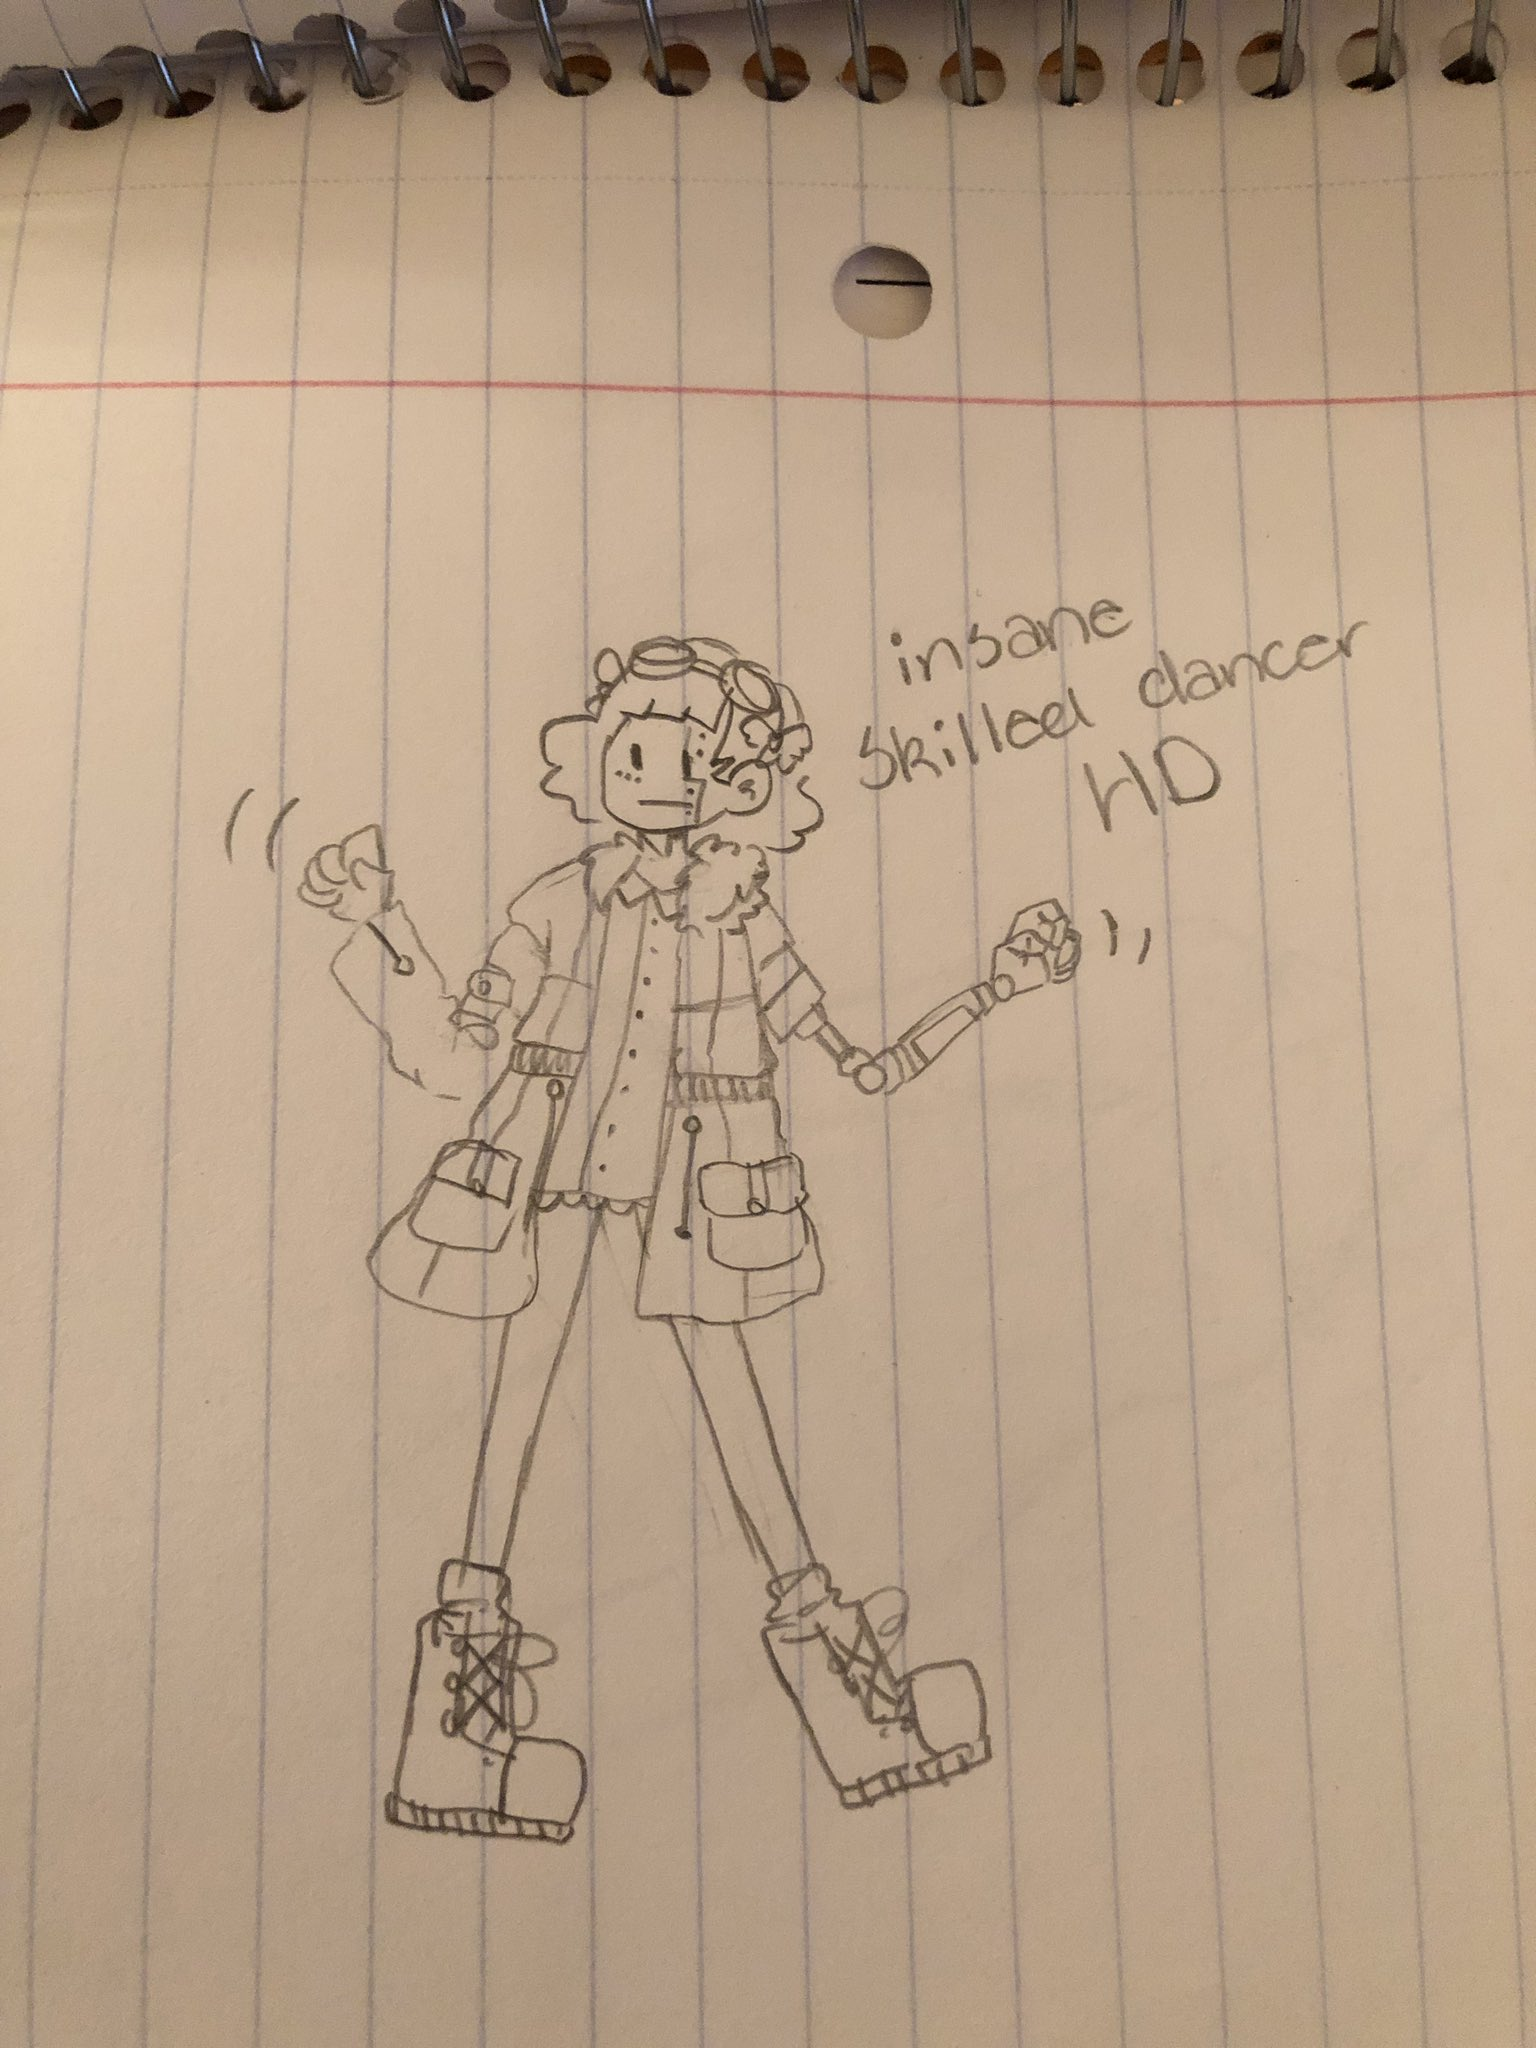 insane
skilled dancer
HD